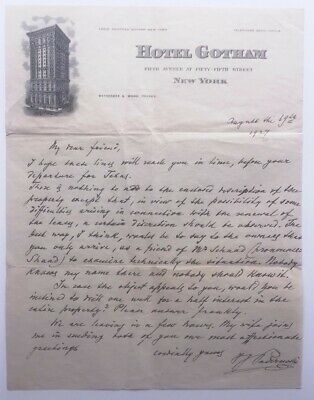 HOTEL GOTHAM
FIFTH AVENUE AT FIFTY-FIFTH STREET
NEW YORK
August the 19th
1927
My dear friend,
I hope these lines will reach you in time, before your
departure for Texas.
There is nothing to add to the enclosed description of the
property except that, in view of the possibility of some
difficulties arising in connection with the renewal of
the lease, a certain discretion should be observed. The
best way, I think, would be to say to the owners that
you only arrive, as a friend of Mr (pronounce
) to examine technically the situation. Nobody
knows my name there and nobody should know it.
In case the object appeals to you, would you be
inclined to drill one well for a half interest in the
entire property? Please answer frankly.
We are leaving in a few hours. My wife joins
me in sending both of you our most affectionate
greetings
cordially yours
I J Paderewski